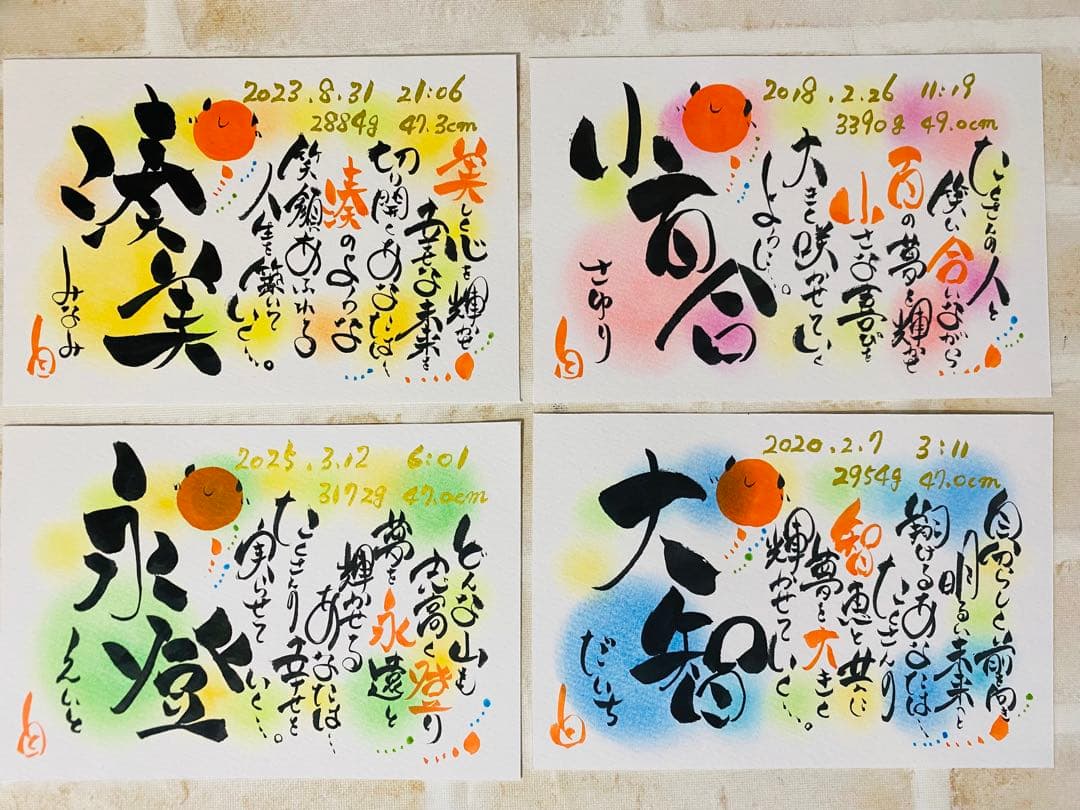 2023.8.31 21:06
2884g 47.3cm
湊美
みなみ
美しく心を輝かせ
幸せな未来を
切り開くあなたは…
湊のような
笑顔あふれる
人生を築いて
いく…。
2018.2.26 11:19
3390g 49.0cm
小百合
さゆり
たくさんの人と
笑い合いながら…
百の夢を輝かせ
小さな喜びを
大きく咲かせていく
ように…。
2025.3.12 6:01
3172g 47.0cm
永燈
えいと
どんな山も
空高く燈り
夢を永遠と
輝かせる
あなたは…
たくさんの幸せを
実らせて
いく…。
2020.2.7 3:11
2954g 47.0cm
大智
だいち
自分らしく前向き
明るい未来へと
翔けるあなたは…
たくさんの
智恵と共に
夢を大きく
輝かせて
いく…。